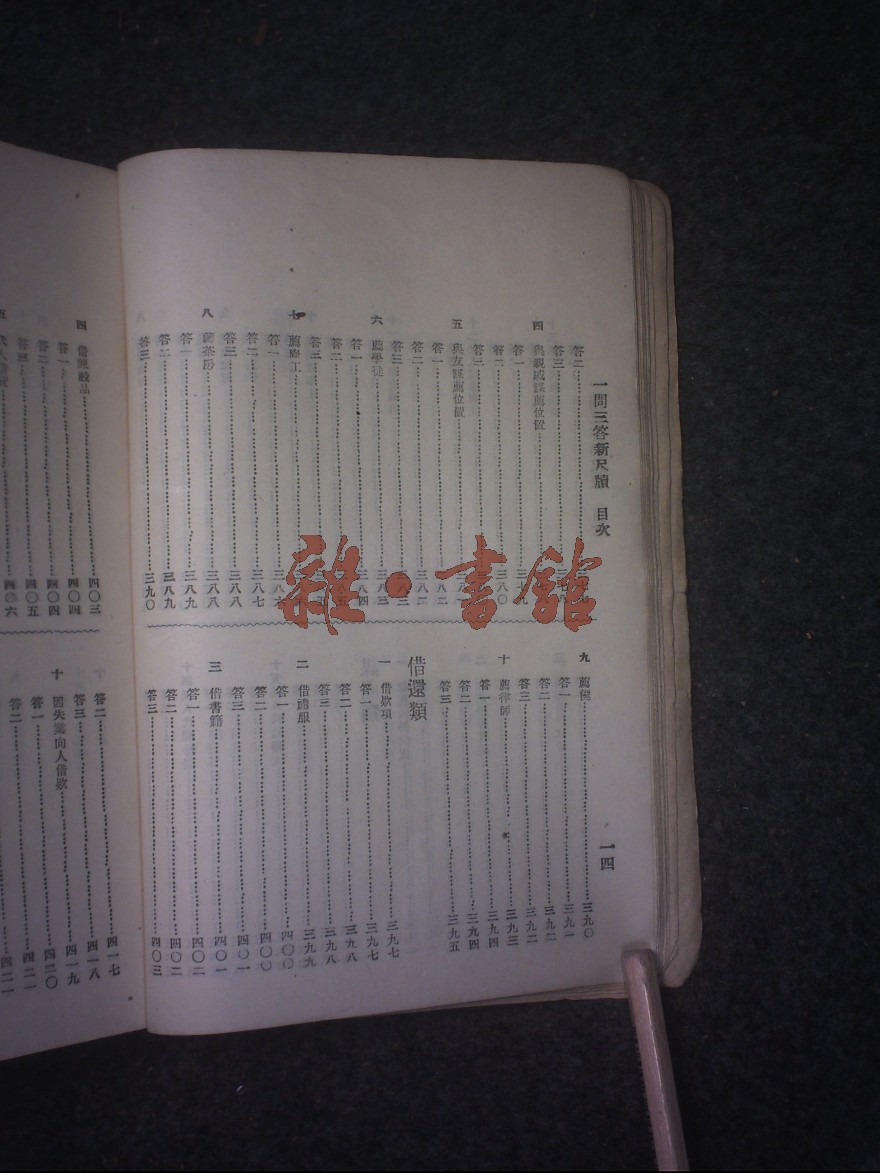 一問三答新尺牘 目次
一四
答二
答三
四 與親戚謀薦位置
答一
答二 三八〇
答三
五 與友謀薦位置 三八一
答一 三八二
答二 三八二
答三 三八三
六 薦學徒 三八三
答一 三八四
答二
答三
七 薦廚工
答一 三八六
答二 三八七
答三 三八八
八 薦茶房 三八八
答一 三八九
答二 三八九
答三 三九〇
九 薦 三九〇
答一 三九一
答二 三九二
答三 三九二
十 薦律師 三九三
答一 三九四
答二 三九四
答三 三九五
借還類
一 借欵項 三九七
答一 三九七
答二 三九八
答三 三九八
二 借禮服 三九九
答一 四〇〇
答二 四〇〇
答三 四〇一
三 借書籍 四〇一
答一 四〇二
答二 四〇二
答三 四〇三
四 借陳設品 四〇三
答一 四〇四
答二 四〇四
答三 四〇五
五 四〇六
答二 四一七
答三 四一八
十 因失業向人借欵 四一九
答一 四二〇
答二 四二一
四二一
雜·書館